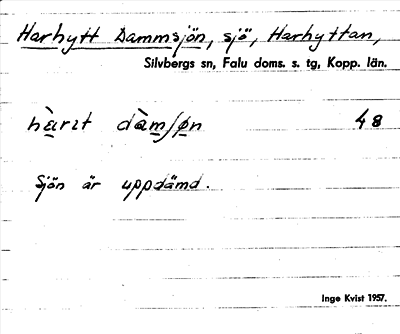 Harhytt Dammsjön, sjö, Harhyttan,
Silvbergs sn, Falu doms. s. tg, Kopp. län.
48
Sjön är uppdämd.
Inge Kvist 1957.